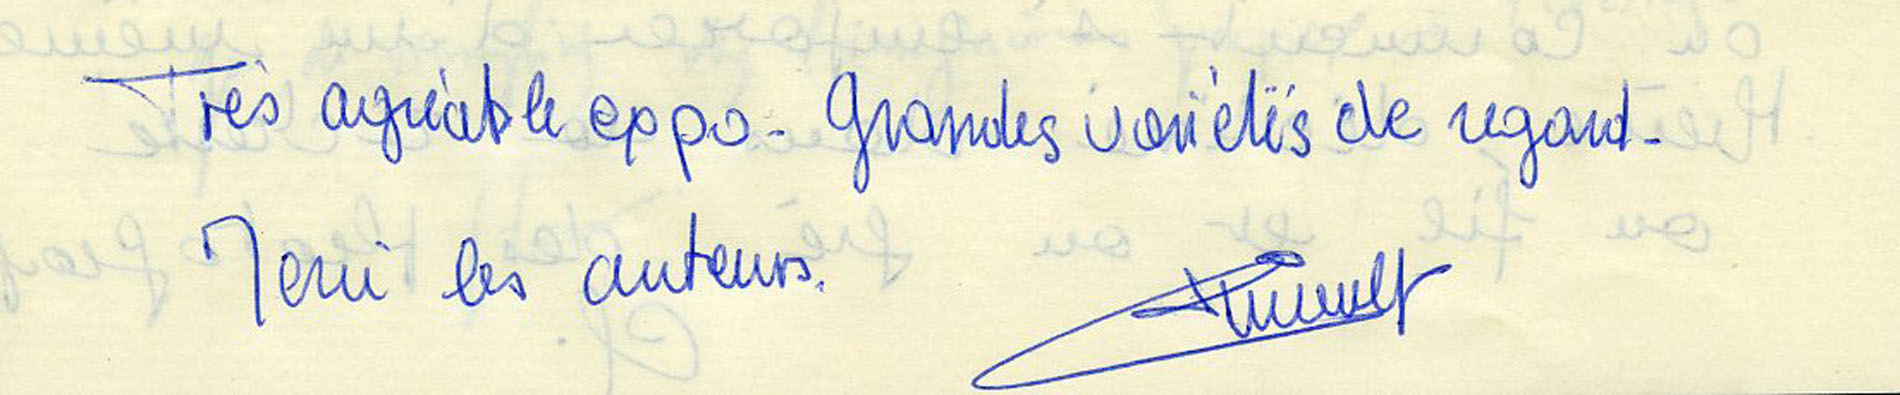 Très agréable expo - Grandes variétés de regard -
Merci les auteurs.